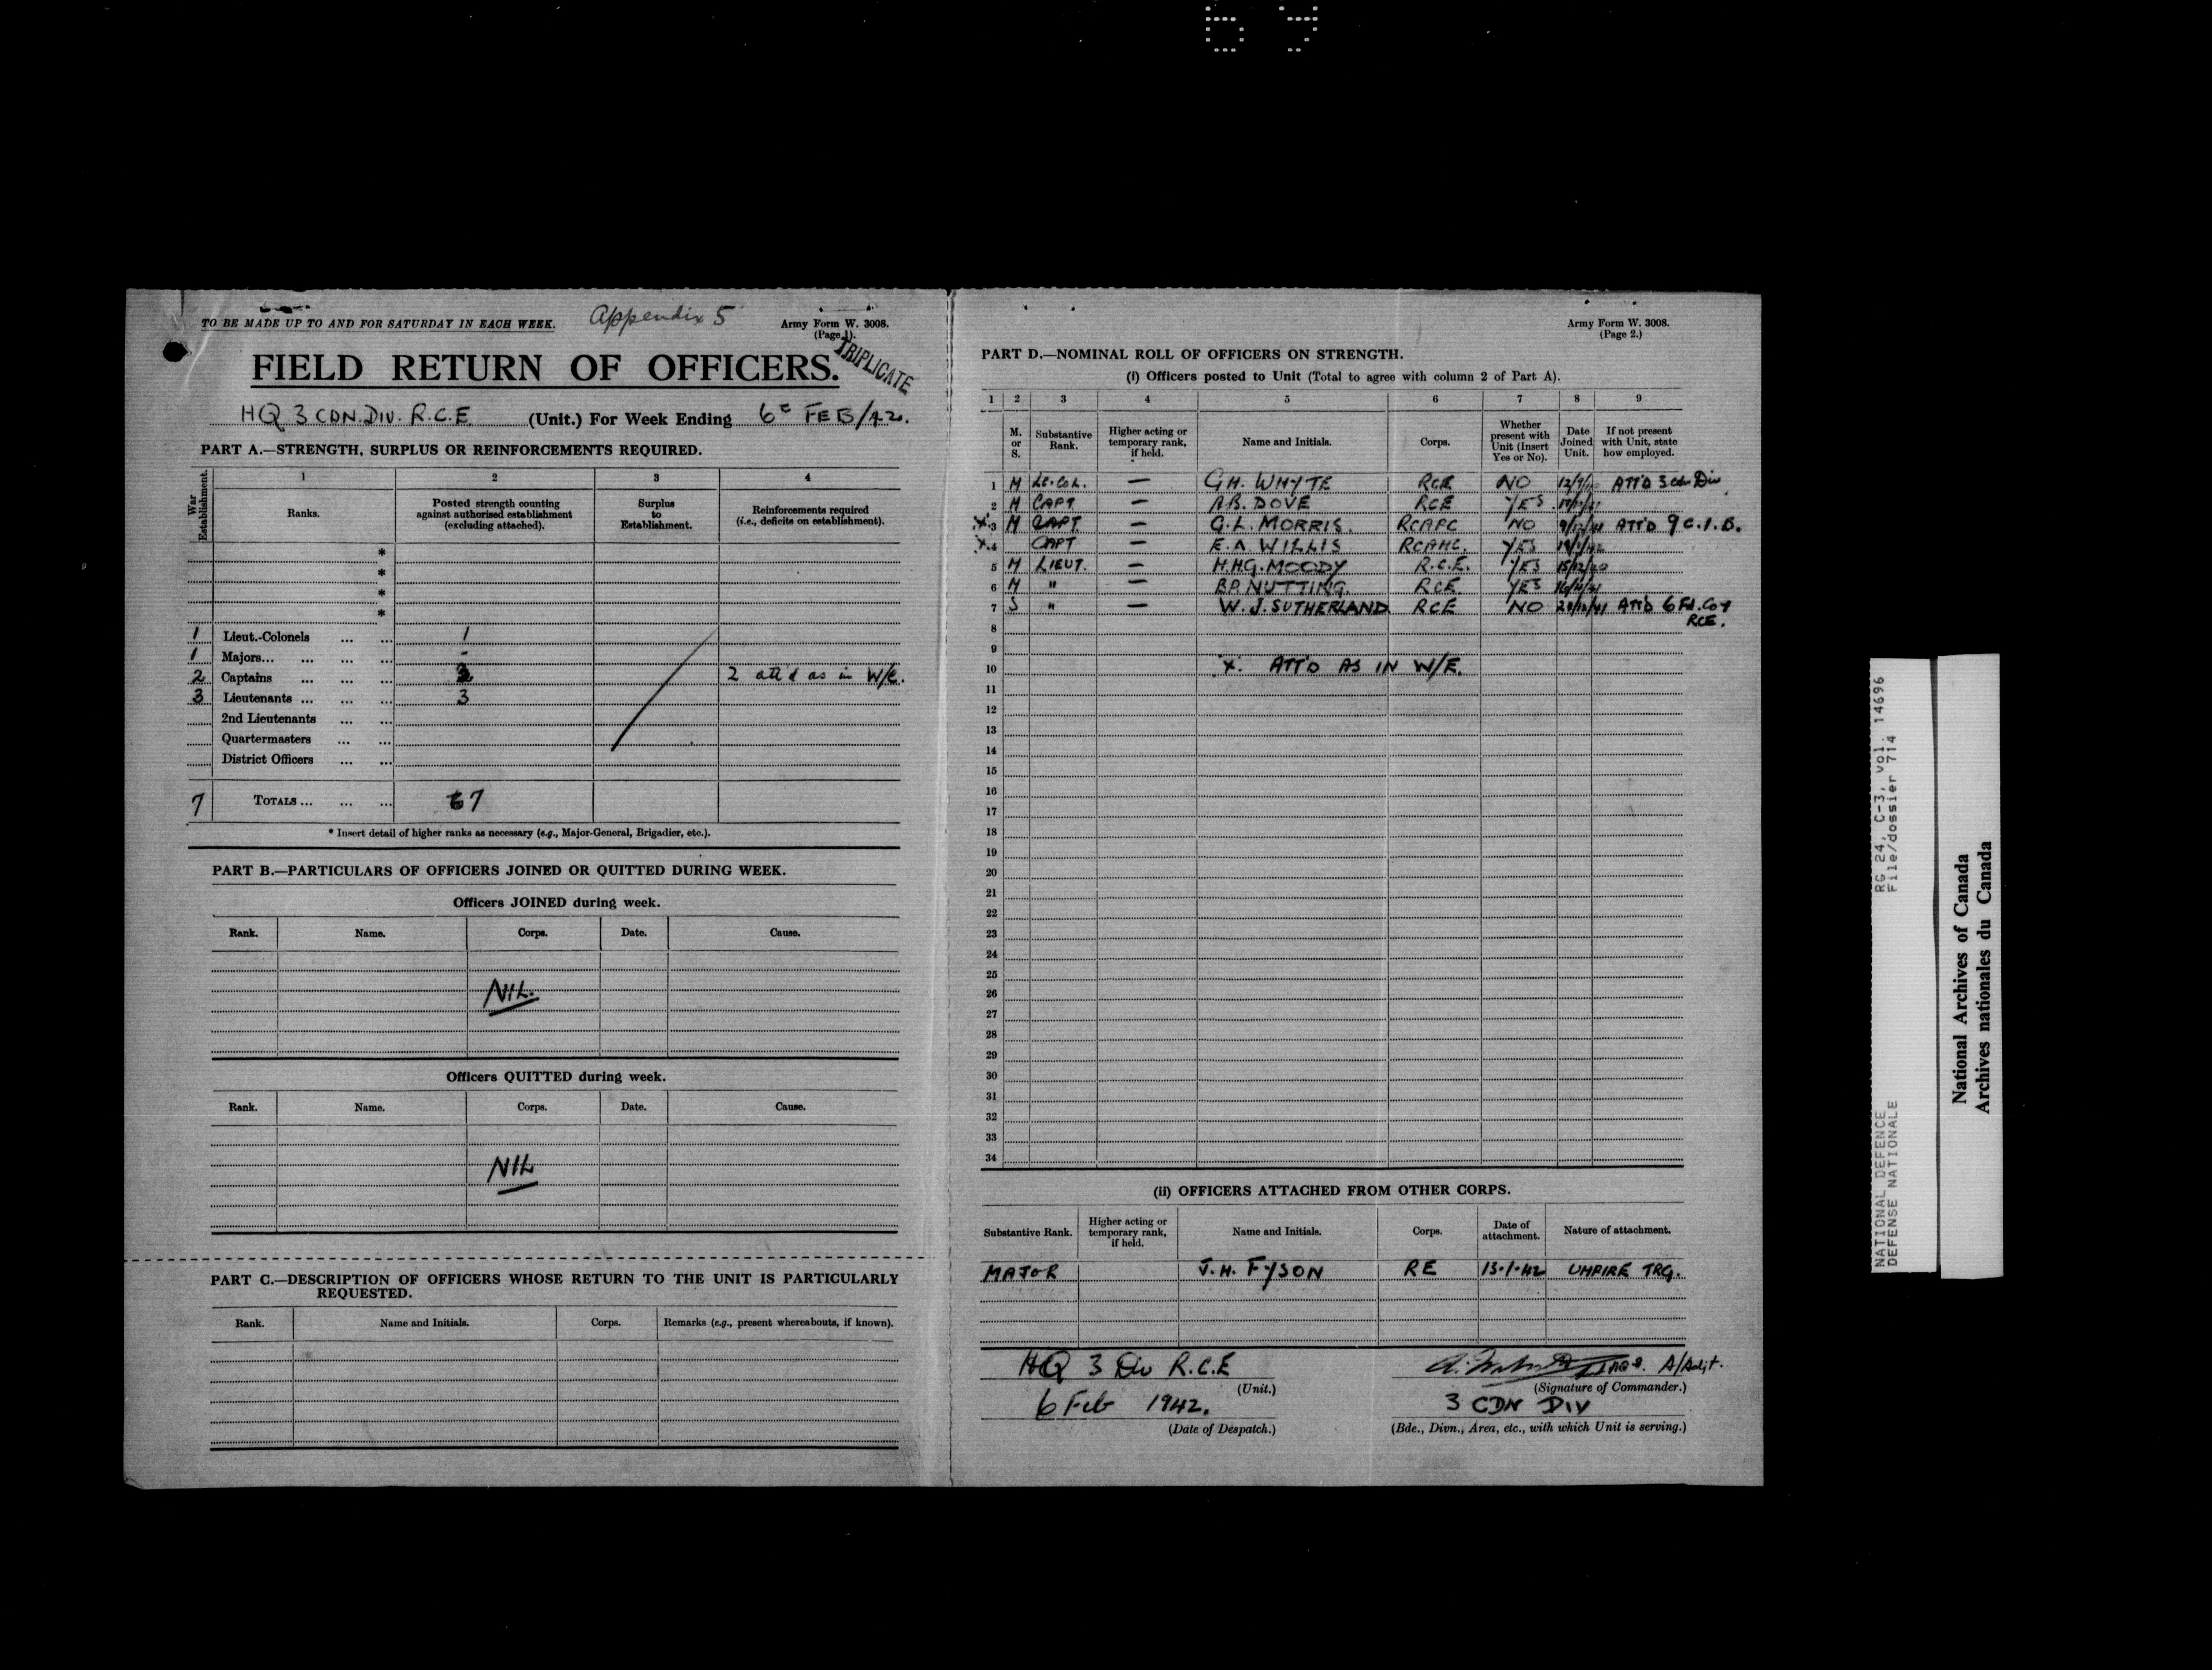 TO BE MADE UP TO AND FOR SATURDAY IN EACH WEEK.
Appendix 5
Army Form W. 3008.
(Page 1).
TRIPLICATE
FIELD RETURN OF OFFICERS.
HQ 3 CDN. DIV. R.C.E (Unit.) For Week Ending 6 FEB/42.
PART A.—STRENGTH, SURPLUS OR REINFORCEMENTS REQUIRED.
War Establishment.
1 2 3 4
Ranks. Posted strength counting against authorised establishment (excluding attached). Surplus to Establishment. Reinforcements required (i.e., deficits on establishment).
*
*
*
*
1 Lieut.-Colonels ... ... 1
1 Majors... ... ... ... -
2 Captains ... ... ... 2 att'd as in W/E.
3 Lieutenants ... ... ... 3
2nd Lieutenants ... ...
Quartermasters ... ...
District Officers ... ...
7 TOTALS ... ... ... 7
* Insert detail of higher ranks as necessary (e.g., Major-General, Brigadier, etc.).
PART B.—PARTICULARS OF OFFICERS JOINED OR QUITTED DURING WEEK.
Officers JOINED during week.
Rank. Name. Corps. Date. Cause.
NIL.
Officers QUITTED during week.
Rank. Name. Corps. Date. Cause.
NIL
PART C.—DESCRIPTION OF OFFICERS WHOSE RETURN TO THE UNIT IS PARTICULARLY
REQUESTED.
Rank. Name and Initials. Corps. Remarks (e.g., present whereabouts, if known).
Army Form W. 3008.
(Page 2.)
PART D.—NOMINAL ROLL OF OFFICERS ON STRENGTH.
(i) Officers posted to Unit (Total to agree with column 2 of Part A).
1 2 3 4 5 6 7 8 9
M. or S. Substantive Rank. Higher acting or temporary rank, if held. Name and Initials. Corps. Whether present with Unit (Insert Yes or No). Date Joined Unit. If not present with Unit, state how employed.
1 M Lt. Col. — G.H. WHYTE RCE NO ATT'D 3 Cdn Div
2 M CAPT — A.B. DOVE RCE YES
x 3 M CAPT. — G.L. MORRIS. RCAPC NO 9/12/41 ATT'D 9 C.I.B.
x 4 CAPT — E.A WILLIS RCAMC. YES
5 M LIEUT. — H.H.G. MOODY R.C.E. YES 15/12/40
6 M " — B.P. NUTTING. RCE YES
7 S " — W.J. SUTHERLAND RCE NO ATT'D 6 Fd. Coy
RCE.
8
9
10 x. ATT'D AS IN W/E.
11
12
13
14
15
16
17
18
19
20
21
22
23
24
25
26
27
28
29
30
31
32
33
34
(ii) OFFICERS ATTACHED FROM OTHER CORPS.
Substantive Rank. Higher acting or temporary rank, if held. Name and Initials. Corps. Date of attachment. Nature of attachment.
MAJOR J.H. FYSON RE 13·1·42 UMPIRE TRG.
HQ 3 Div R.C.E
(Unit.)
6 Feb 1942.
(Date of Despatch.)
A/Adjt.
(Signature of Commander.)
3 CDN DIV
(Bde., Divn., Area, etc., with which Unit is serving.)
NATIONAL DEFENCE RG 24, C-3, vol. 14696
DEFENSE NATIONALE File/dossier 714
National Archives of Canada
Archives nationales du Canada